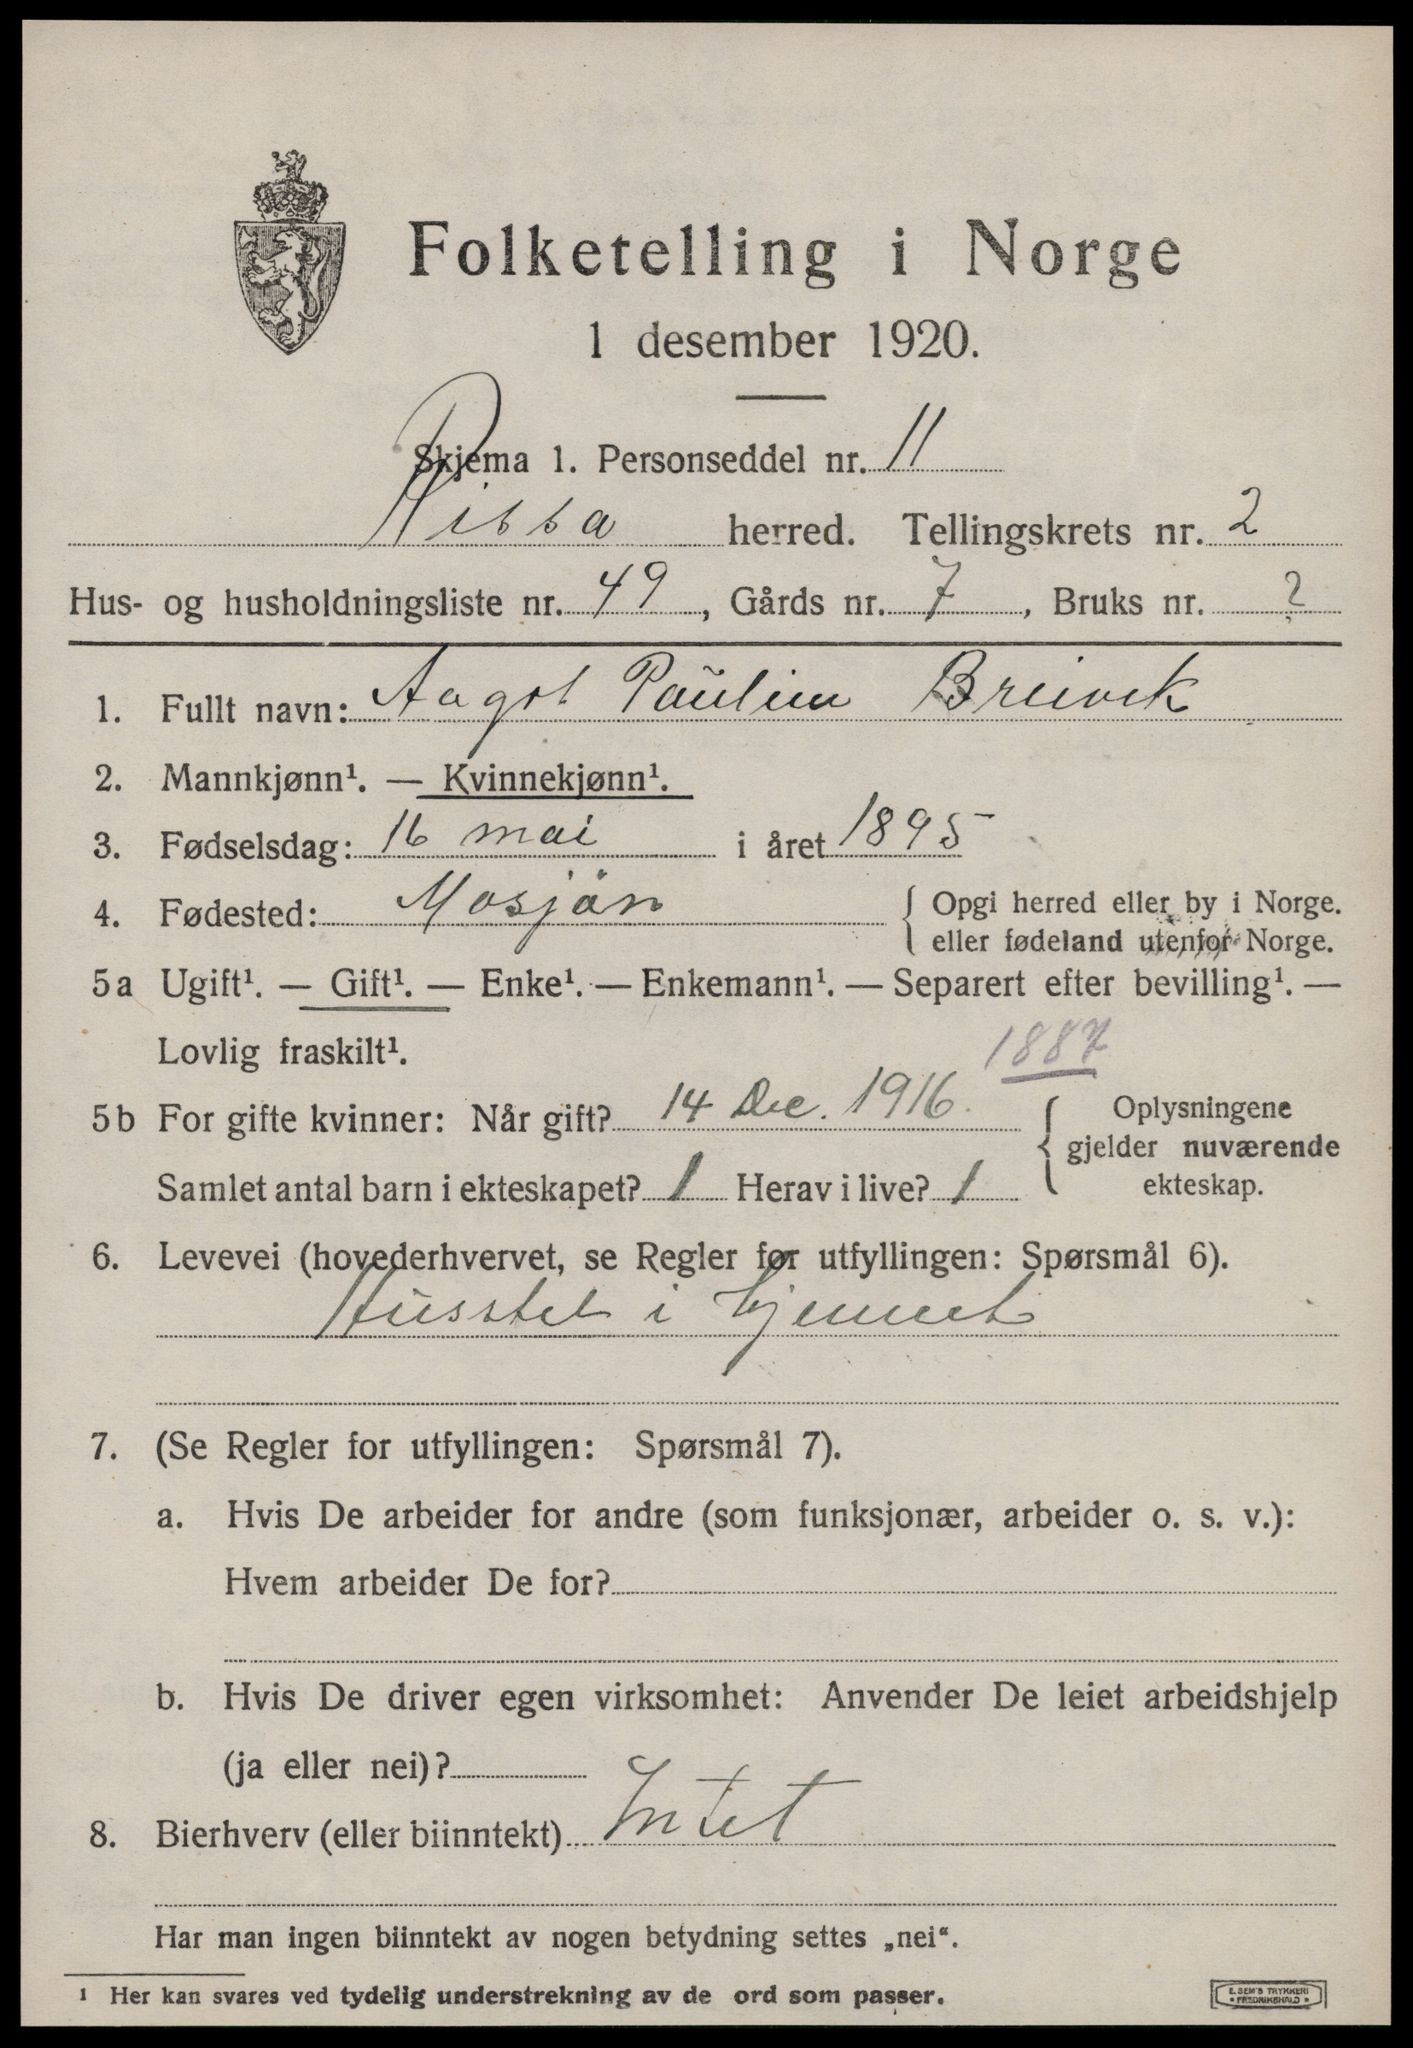 Folketelling i Norge
1 desember 1920.
Skjema 1. Personseddel nr. 11
Rissa herred. Tellingskrets nr. 2
Hus- og husholdningsliste nr. 49, Gårds nr. 7, Bruks nr. ?
1. Fullt navn: Aagot Pauline Breivik
2. Mannkjønn¹. — Kvinnekjønn¹.
3. Fødselsdag: 16 mai i året 1895
4. Fødested: Mosjön { Opgi herred eller by i Norge.
eller fødeland utenfor Norge.
5a Ugift¹. — Gift¹. — Enke¹. — Enkemann¹. — Separert efter bevilling¹. —
Lovlig fraskilt¹.
1887
5b For gifte kvinner: Når gift? 14 Dec. 1916. { Oplysningene
gjelder nuværende
Samlet antal barn i ekteskapet? 1 Herav i live? 1
ekteskap.
6. Levevei (hovederhvervet, se Regler for utfyllingen: Spørsmål 6).
Husstel i hjemmet
7. (Se Regler for utfyllingen: Spørsmål 7).
a. Hvis De arbeider for andre (som funksjonær, arbeider o. s. v.):
Hvem arbeider De for?
b. Hvis De driver egen virksomhet: Anvender De leiet arbeidshjelp
(ja eller nei)?
8. Bierhverv (eller biinntekt) Intet
Har man ingen biinntekt av nogen betydning settes „nei“.
1 Her kan svares ved tydelig understrekning av de ord som passer.
E. SEM'S TRYKKERI
• FREDRIKSHALD •